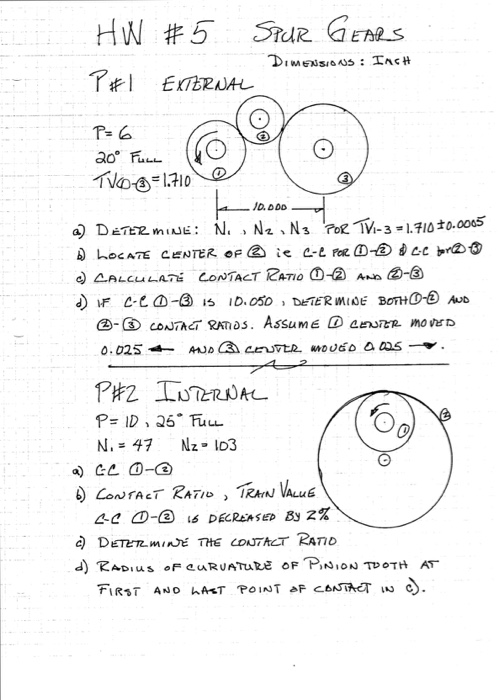 HW #5 SPUR GEARS
DIMENSIONS: INCH
P#1 EXTERNAL
P=6
20° FULL
TV①-③=1.710
①
②
③
10.000
a) DETERMINE: N1, N2, N3 FOR TV1-3=1.710±0.0005
b) LOCATE CENTER OF ② ie C-C FOR ①-② & C-C for ②-③
c) CALCULATE CONTACT RATIO ①-② AND ②-③
d) IF C-C ①-③ IS 10.050, DETERMINE BOTH ①-② AND
②-③ CONTACT RATIOS. ASSUME ① CENTER MOVED
0.025 ← AND ③ CENTER MOVED 0.025 →.
P#2 INTERNAL
P=10, 25° FULL
N1 = 47 N2=103
①
②
a) C-C ①-②
b) CONTACT RATIO, TRAIN VALUE
C-C ①-② IS DECREASED BY 2%
c) DETERMINE THE CONTACT RATIO
d) RADIUS OF CURVATURE OF PINION TOOTH AT
FIRST AND LAST POINT OF CONTACT IN c).